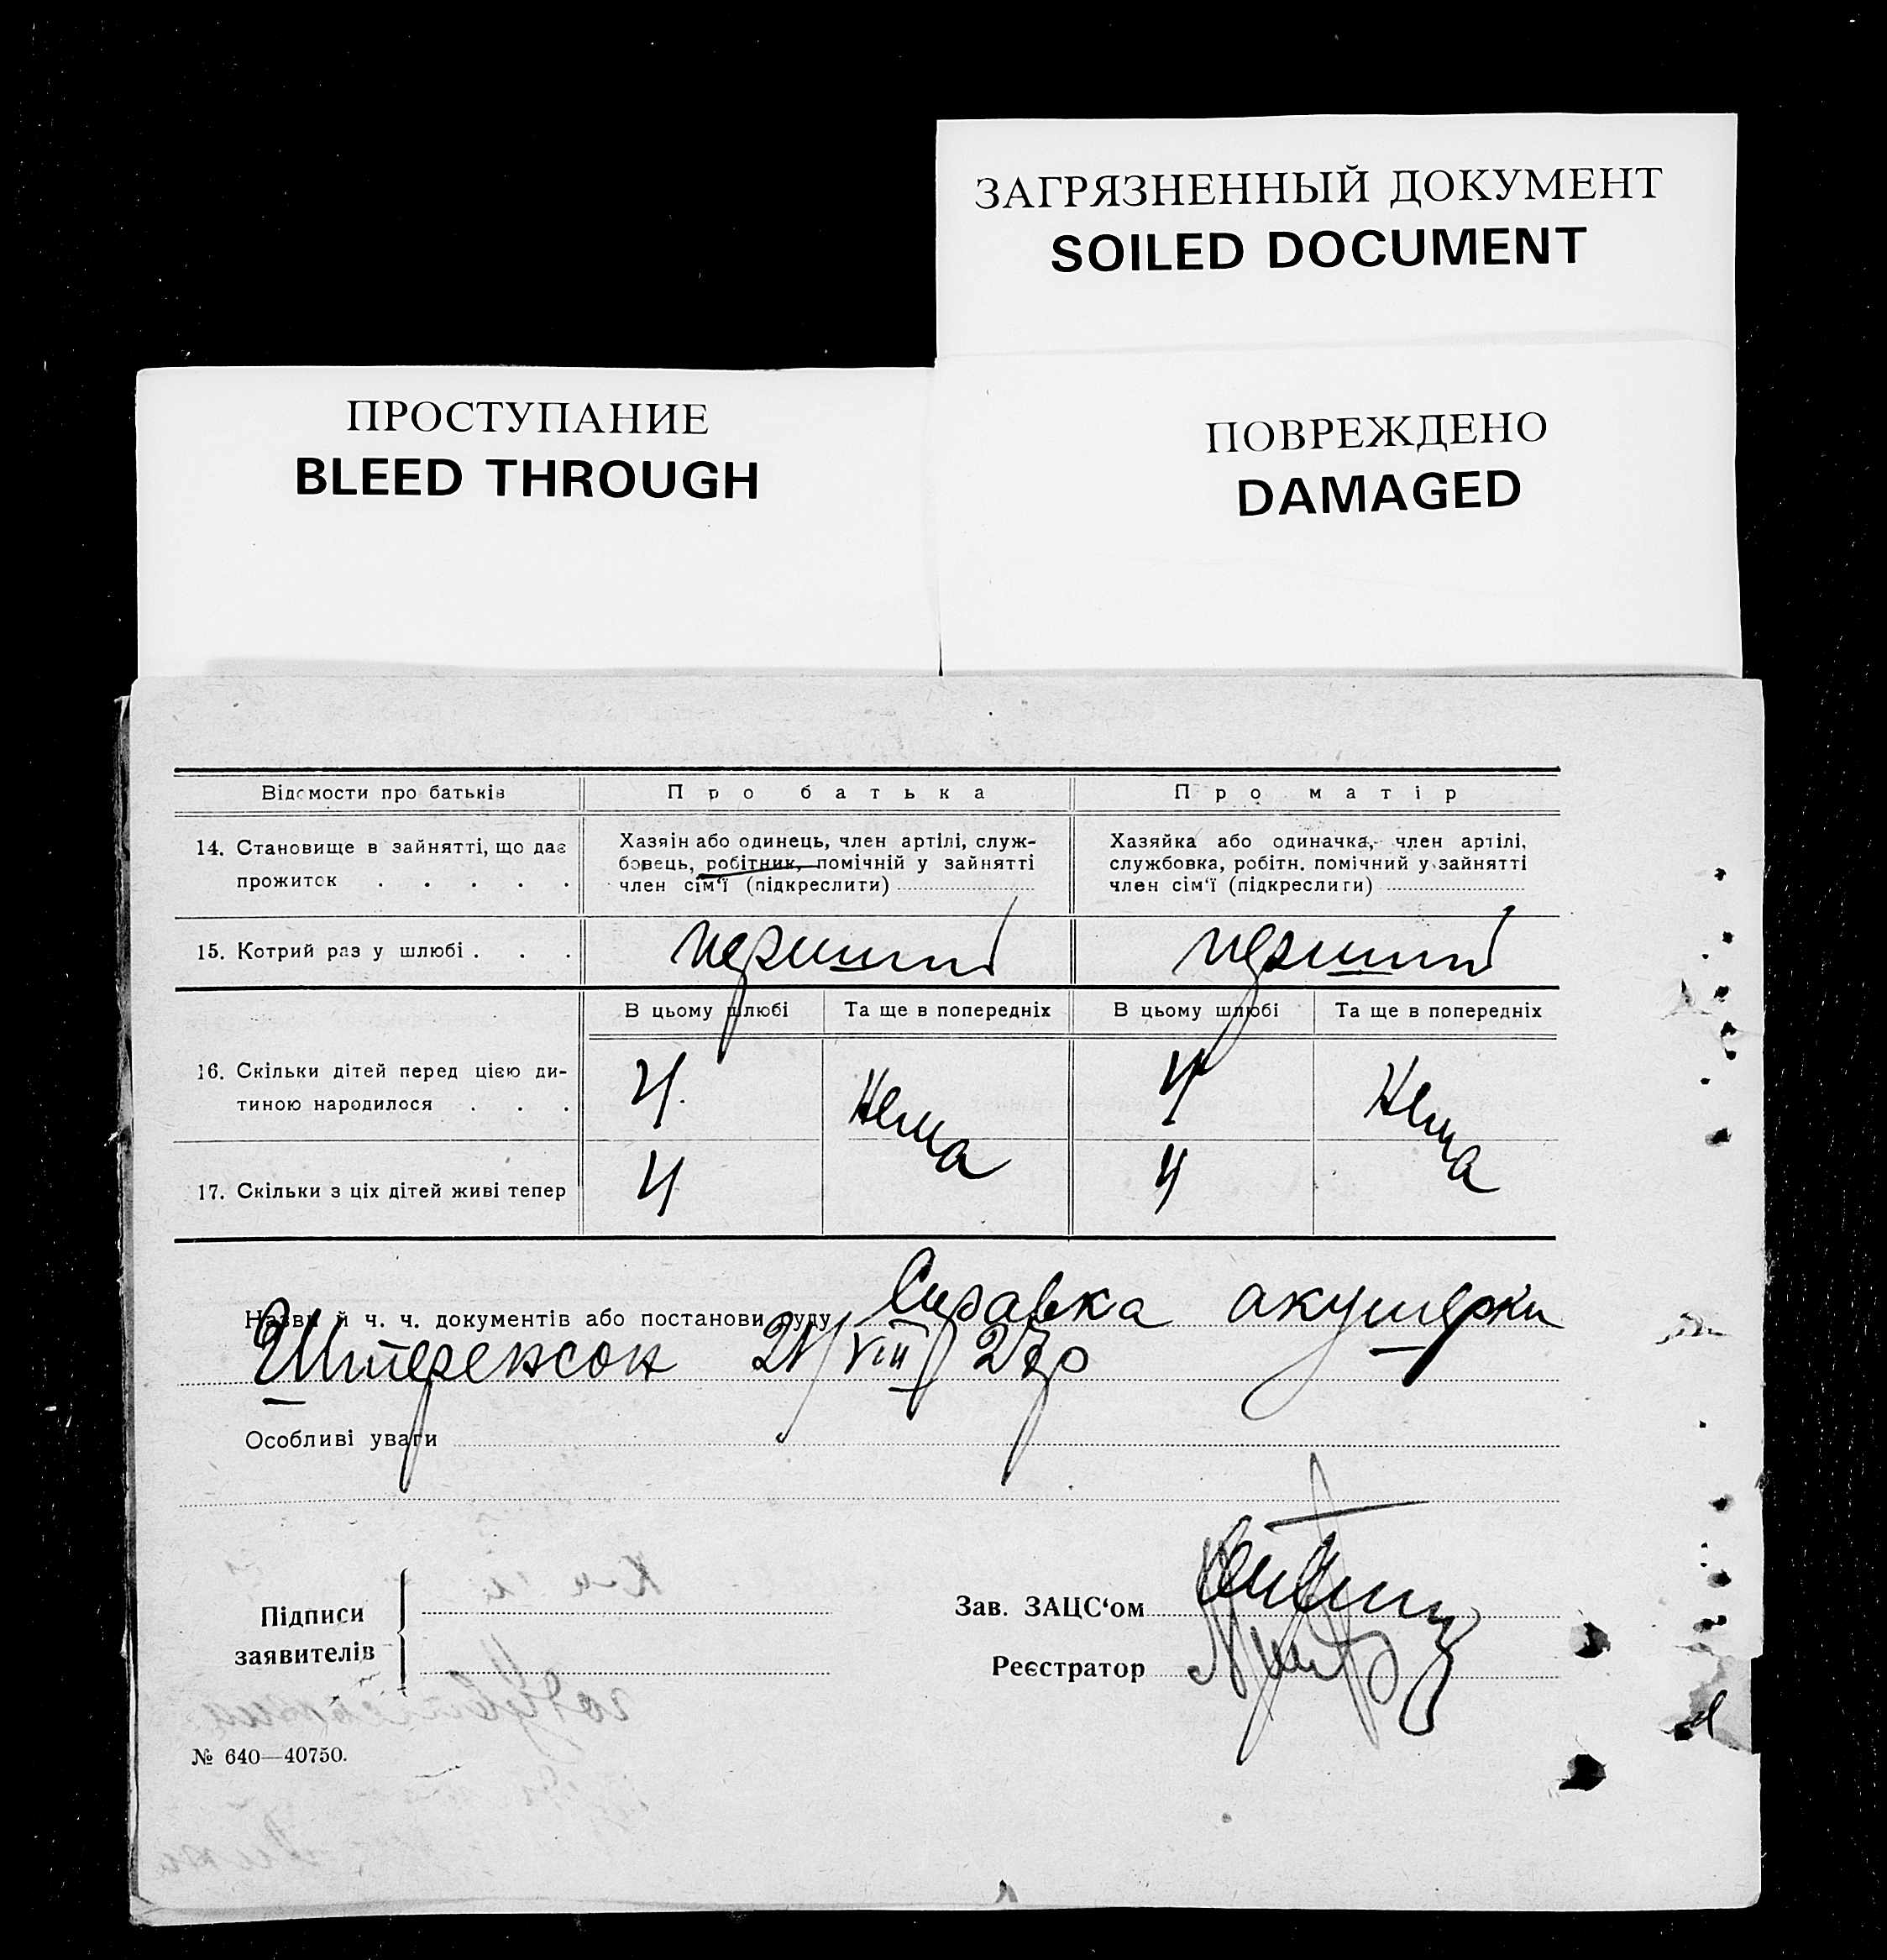 ЗАГРЯЗНЕННЫЙ ДОКУМЕНТ
SOILED DOCUMENT
ПРОСТУПАНИЕ
BLEED THROUGH
ПОВРЕЖДЕНО
DAMAGED
Відомости про батьків
Про батька
Про матір
14. Становище в зайнятті, що дає
прожиток . . . . .
Хазяін або одинець, член артілі, служ-
бовець, робітник, помічній у зайнятті
член сім'ї (підкреслити)
Хазяйка або одиначка, член артілі,
службовка, робітн. помічний у зайнятті
член сім'ї (підкреслити)
15. Котрий раз у шлюбі . . .
перший
перший
В цьому шлюбі
Та ще в попередніх
В цьому шлюбі
Та ще в попередніх
16. Скільки дітей перед цією ди-
тиною народилося . . .
4.
Нема
4
Нема
17. Скільки з ціх дітей живі тепер
4
4
Назви й ч. ч. документів або постанови суду Справка акушерки
Штеренсон 21/VIII 27р
Особливі уваги
Підписи
заявителів
Зав. ЗАЦС'ом
Реєстратор
№ 640—40750.